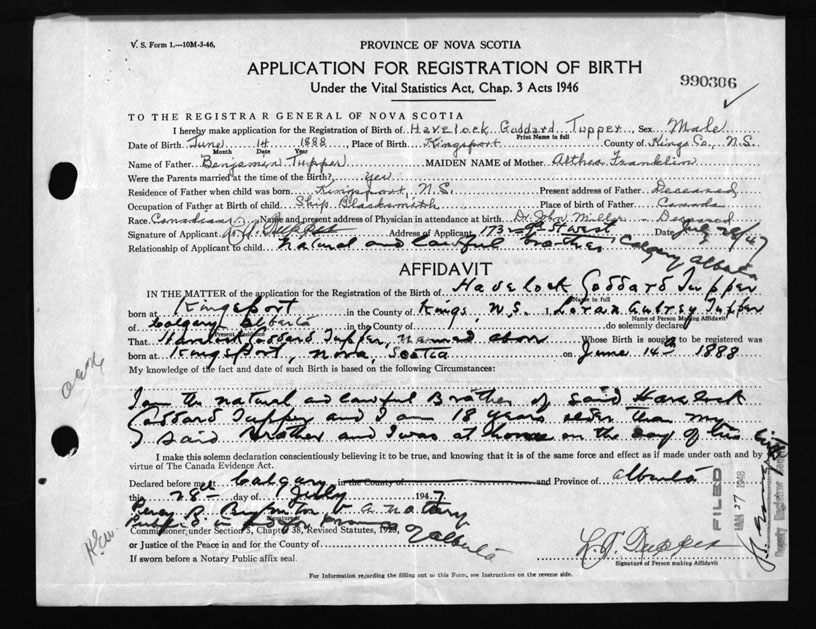 V. S. Form 1.—10M-3-46,
PROVINCE OF NOVA SCOTIA
APPLICATION FOR REGISTRATION OF BIRTH
Under the Vital Statistics Act, Chap. 3 Acts 1946
990306
TO THE REGISTRAR GENERAL OF NOVA SCOTIA
I hereby make application for the Registration of Birth of Havelock Goddard Tupper, Sex Male
Print Name in full
Date of Birth June 14 1888, Place of Birth Kingsport County of Kings Co., N.S.
Month Date Year
Name of Father Benjamin Tupper MAIDEN NAME of Mother Althea Franklin
Were the Parents married at the time of the Birth? yes
Residence of Father when child was born Kingsport, N.S. Present address of Father Deceased
Occupation of Father at Birth of child Ship Blacksmith Place of birth of Father Canada
Race Canadian Name and present address of Physician in attendance at birth Dr. John Miller - Deceased
Signature of Applicant L. A. Tupper Address of Applicant 1732 St West Date July 28/47
Relationship of Applicant to child natural and lawful brother Calgary Alberta
AFFIDAVIT
IN THE MATTER of the application for the Registration of the Birth of Havelock Goddard Tupper
Name in full
born at Kingsport in the County of Kings, N.S. I, Loran Aubrey Tupper
Name of Person Making Affidavit
of Calgary Alberta in the County of do solemnly declare
Present Residence
That Havelock Goddard Tupper, named above Whose Birth is sought to be registered was
born at Kingsport, Nova Scotia on June 14th 1888
My knowledge of the fact and date of such Birth is based on the following Circumstances:
I am the natural and lawful Brother of said Havelock
Goddard Tupper and I am 18 years older than my
said Brother and I was at home on the day of his birth
I make this solemn declaration conscientiously believing it to be true, and knowing that it is of the same force and effect as if made under oath and by
virtue of The Canada Evidence Act.
Declared before me at Calgary in the County of and Province of Alberta
this 28th day of July 1947
Percy R. a Notary
Signature
Public in and for Province
Commissioner, under Section 3, Chapter 38, Revised Statutes, 1923,
of Alberta
or Justice of the Peace in and for the County of
L. A. Tupper
If sworn before a Notary Public affix seal.
Signature of Person making Affidavit
For Information regarding the filling out of this Form, see Instructions on the reverse side.
FILED
JAN 27 1948
Deputy Registrar General